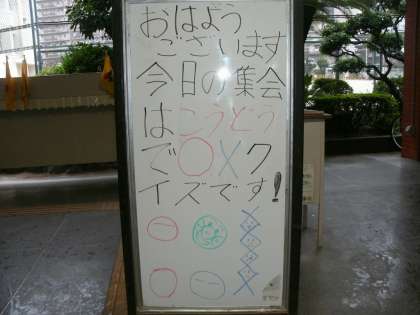 おはよう
ございます
今日の集会
はこうどう
で○×ク
イズです!